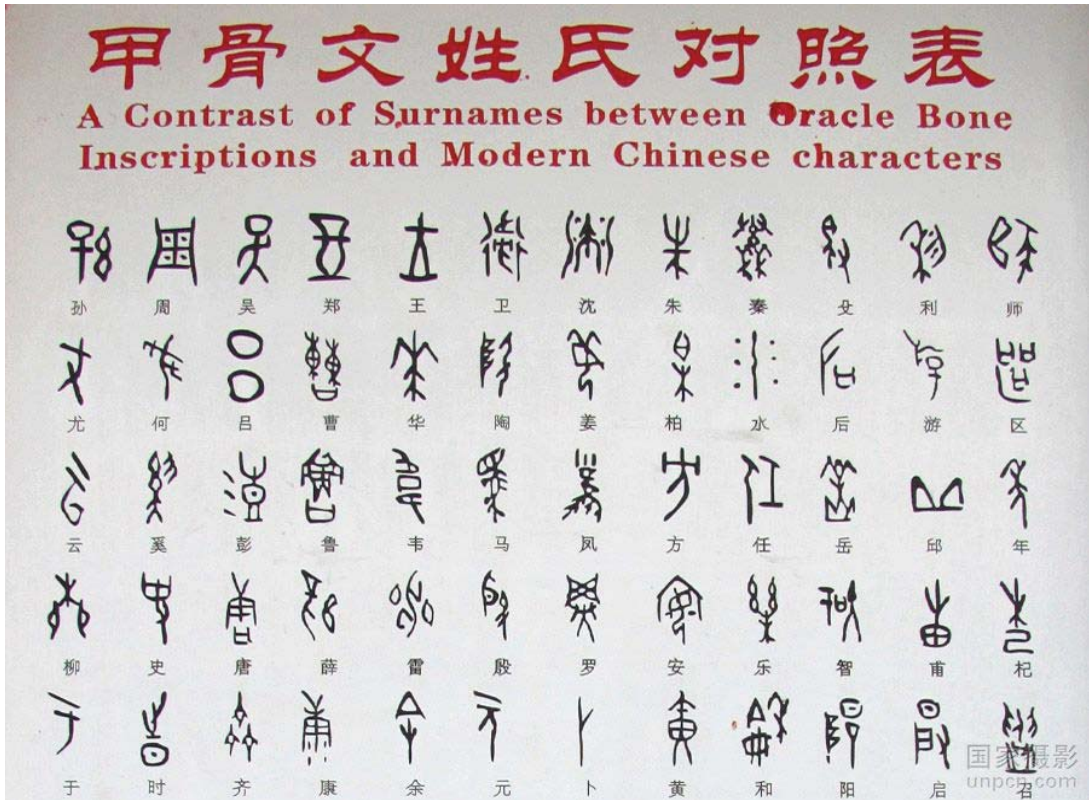 甲骨文姓氏对照表
A Contrast of Surnames between Oracle Bone
Inscriptions and Modern Chinese characters
孙 周 吴 郑 王 卫 沈 朱 秦 殳 利 师
尤 何 吕 曹 华 陶 姜 柏 水 后 游 区
云 奚 彭 鲁 韦 马 凤 方 任 岳 邱 年
柳 史 唐 薛 雷 殷 罗 安 乐 智 甫 杞
于 时 齐 康 余 元 卜 黄 和 阳 启 召
国家摄影
unpcn.com